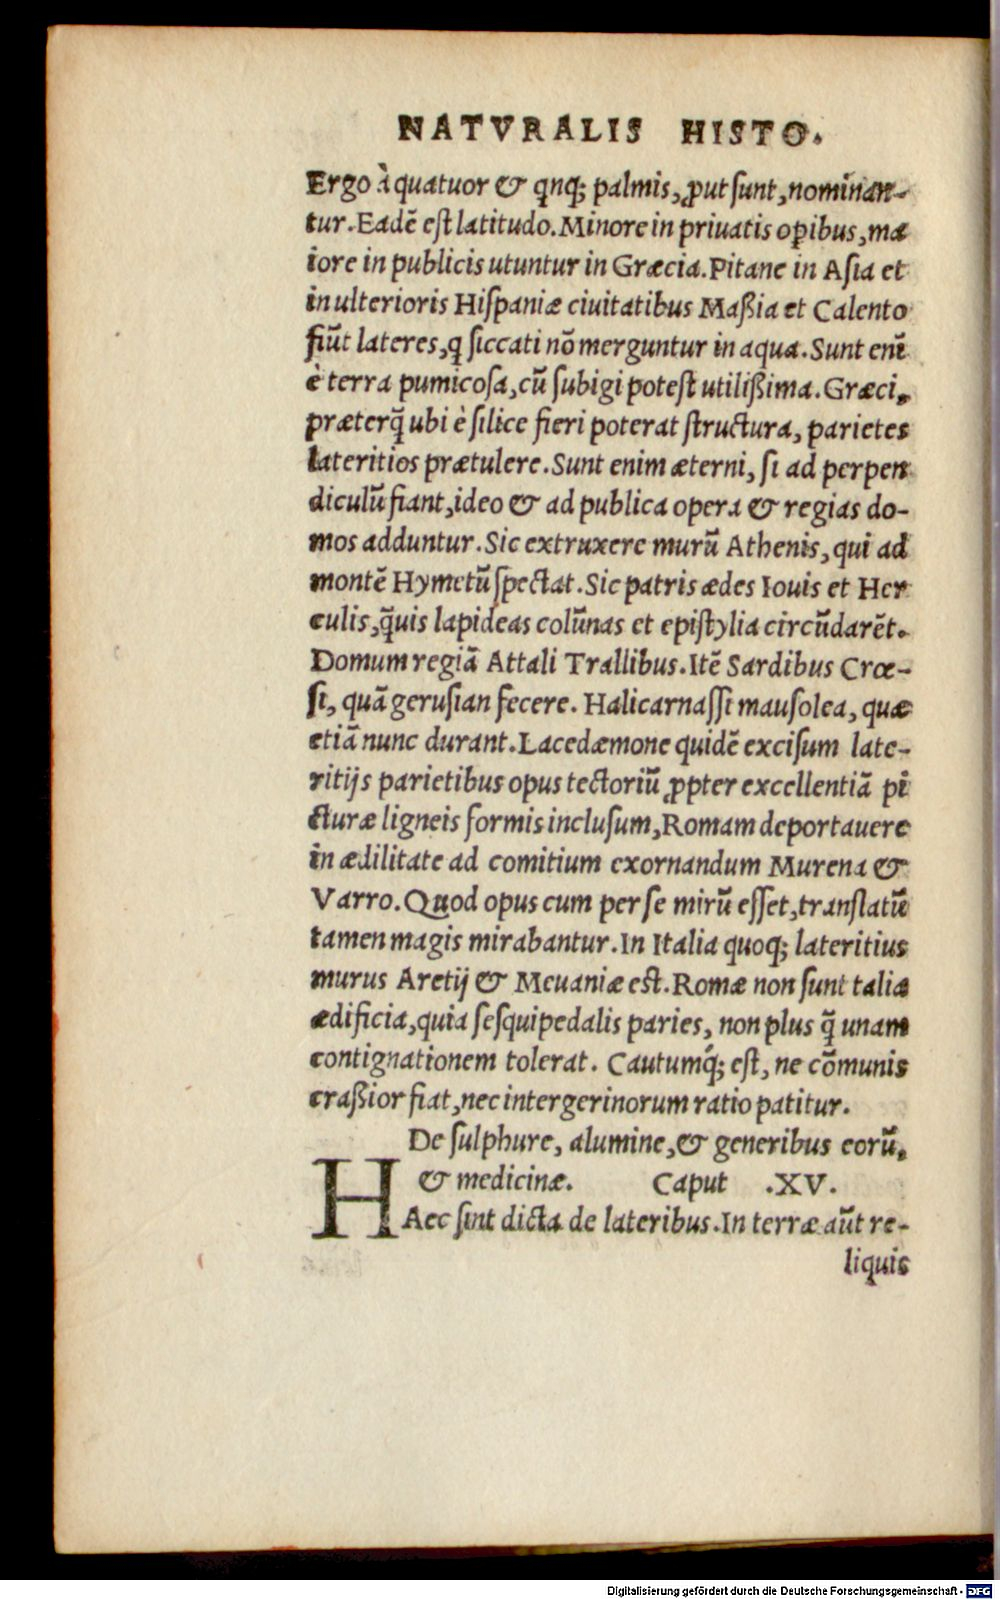 NATVRALIS HISTO.
Ergo à quatuor & qnq; palmis, ꝓut sunt, nominan-
tur. Eadē est latitudo. Minore in priuatis oꝑibus, ma
iore in publicis utuntur in Græcia. Pitane in Asia et
in ulterioris Hispaniæ ciuitatibus Maßia et Calento
fiūt lateres, q siccati nō merguntur in aqua. Sunt enī
è terra pumicosa, cū subigi potest utilißima. Græci,
præterq̄ ubi è silice fieri poterat structura, parietes
lateritios prætulere. Sunt enim æterni, si ad perpen
diculū fiant, ideo & ad publica opera & regias do-
mos adduntur. Sic extruxere murū Athenis, qui ad
montē Hymetū spectat. Sic patris ædes Iouis et Her
culis, q̄uis lapideas colūnas et epistylia circūdarēt.
Domum regiā Attali Trallibus. Itē Sardibus Crœ-
si, quā gerusian fecere. Halicarnassi mausolea, quæ
etiā nunc durant. Lacedæmone quidē excisum late-
ritijs parietibus opus tectoriū ꝓpter excellentiā pi
cturæ ligneis formis inclusum, Romam deportauere
in ædilitate ad comitium exornandum Murena &
Varro. Quod opus cum per se mirū esset, translatū
tamen magis mirabantur. In Italia quoq; lateritius
murus Aretij & Meuaniæ est. Romæ non sunt talia
ædificia, quia sesquipedalis paries, non plus q̄ unam
contignationem tolerat. Cautumq́; est, ne cōmunis
craßior fiat, nec intergerinorum ratio patitur.
De sulphure, alumine, & generibus eorū,
& medicinæ. Caput .XV.
HAec sint dicta de lateribus. In terræ aūt re-
liquis
Digitalisierung gefördert durch die Deutsche Forschungsgemeinschaft - DFG